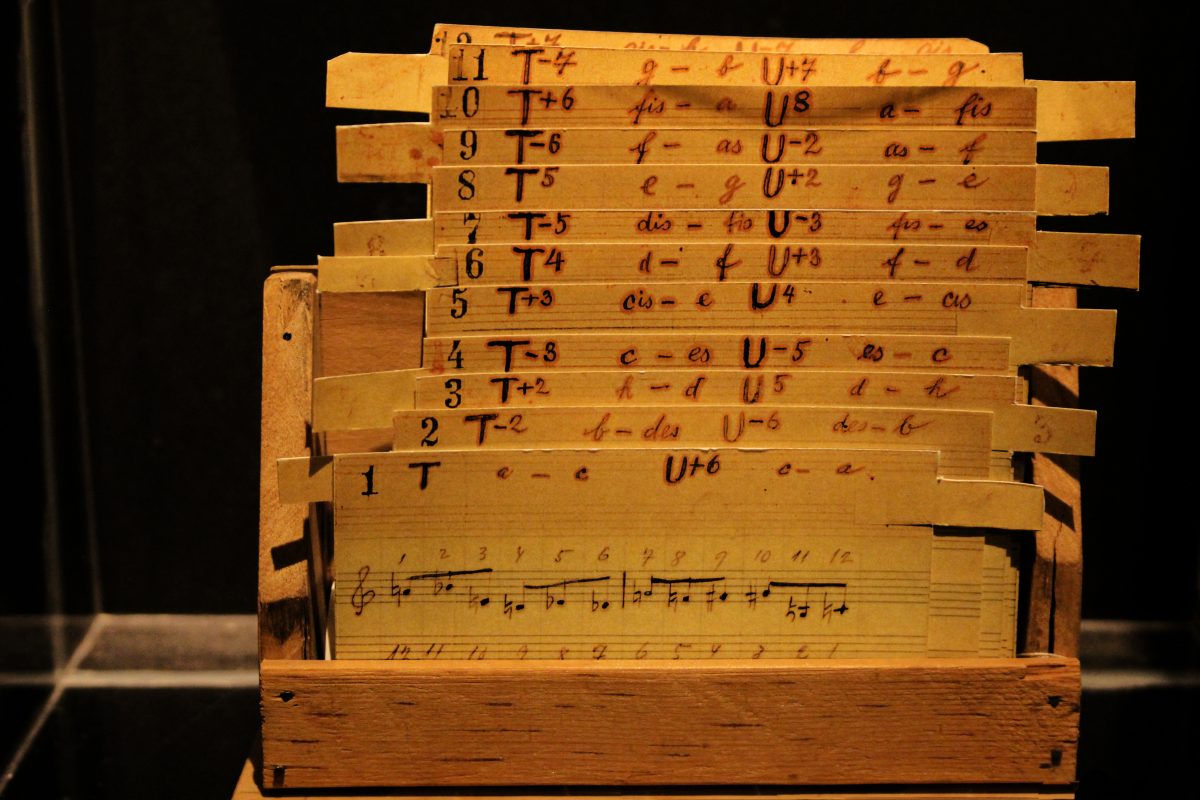 12 T+7 U-7
11 T-7 g - b U+7 b - g.
10 T+6 fis - a U8 a - fis
9 T-6 f - as U-2 as - f
8 T5 e - g U+2 g - e
7 T-5 dis - fis U-3 fis - es
6 T4 d - f U+3 f - d
5 T+3 cis - e U4 e - cis
4 T-3 c - es U-5 es - c
3 T+2 h - d U5 d - h
2 T-2 b - des U-6 des - b
1 T a - c U+6 c - a.
1 2 3 4 5 6 7 8 9 10 11 12
12 11 10 9 8 7 6 5 4 3 2 1